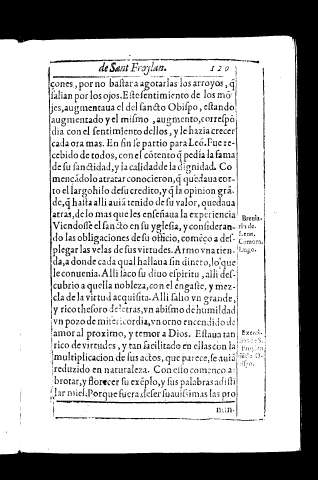 de Sant Froylan. 120
çones, por no bastara agotarlas los arroyos, q̃
salian por los ojos. Este sentimiento de los mõ
jes, augmentaua el del sancto Obispo, estando
augmentado y el mismo, augmento, correspõ
dia con el sentimiento dellos, y le hazia crecer
cada ora mas. En fin se partio para Leõ. Fue re-
cebido de todos, con el cõtento q̃ pedia la fama
de su sanctidad, y la calidad de la dignidad. Co
mençadolo a tratar conocieron, q̃ quedaua cor-
to el largo hilo de su credito, y q̃ la opinion grã
de, q̃ hasta alli auiã tenido de su valor, quedaua
atras, de lo mas que les enseñaua la experiencia
Viendosse el sancto en su yglesia, y consideran-
do las obligaciones de su officio, começo a des-
plegar las velas de sus virtudes. Armo vna tien-
da, a donde cada qual hallaua sin dinero, lo que
le conuenia. Alli saco su diuo espiritu, alli des-
cubrio aquella nobleza, con el engaste, y mez-
cla de la virtud acquisita. Alli salio vn grande,
y rico thesoro de letras, vn abismo de humildad
vn pozo de misericordia, vn orno encendido de
amor al proximo, y temor a Dios. Estaua tan
rico de virtudes, y tan facilitado en ellas con la
multiplicacion de sus actos, que parece, se auiã
reduzido en naturaleza. Con esto comenco a
brotar, y florecer su exẽplo, y sus palabras a disti
lar miel: Porque fuera de ser suauissimas las pro
nun-
Breuia-
rio de
Leon,
Camora
Lugo.